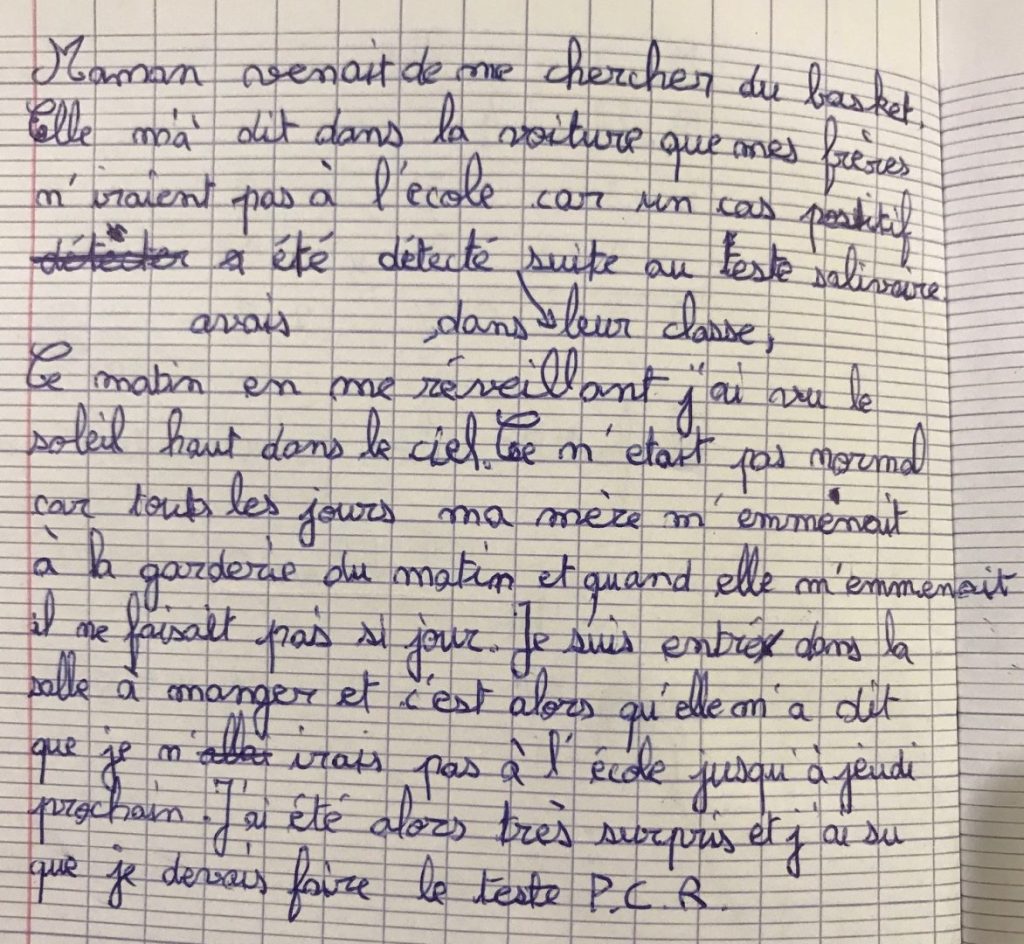 Maman venait de me chercher du basket.
Elle m'à dit dans la voiture que mes frères
n'iraient pas à l'école car un cas positif
détécter a été détecté suite au teste salivaire
avais , dans leur classe,
Ce matin en me réveillant j'ai vu le
soleil haut dans le ciel. Ce n'etait pas normal
car touts les jours ma mère m'emmenait
à la garderie du matin et quand elle m'emmenait
il ne faisait pas si jour. Je suis entré dans la
salle à manger et c'est alors qu'elle m'a dit
que je n'allai irais pas à l'école jusqu'à jeudi
prochain. J'ai été alors très surpris et j'ai su
que je devais faire le teste P.C.R.